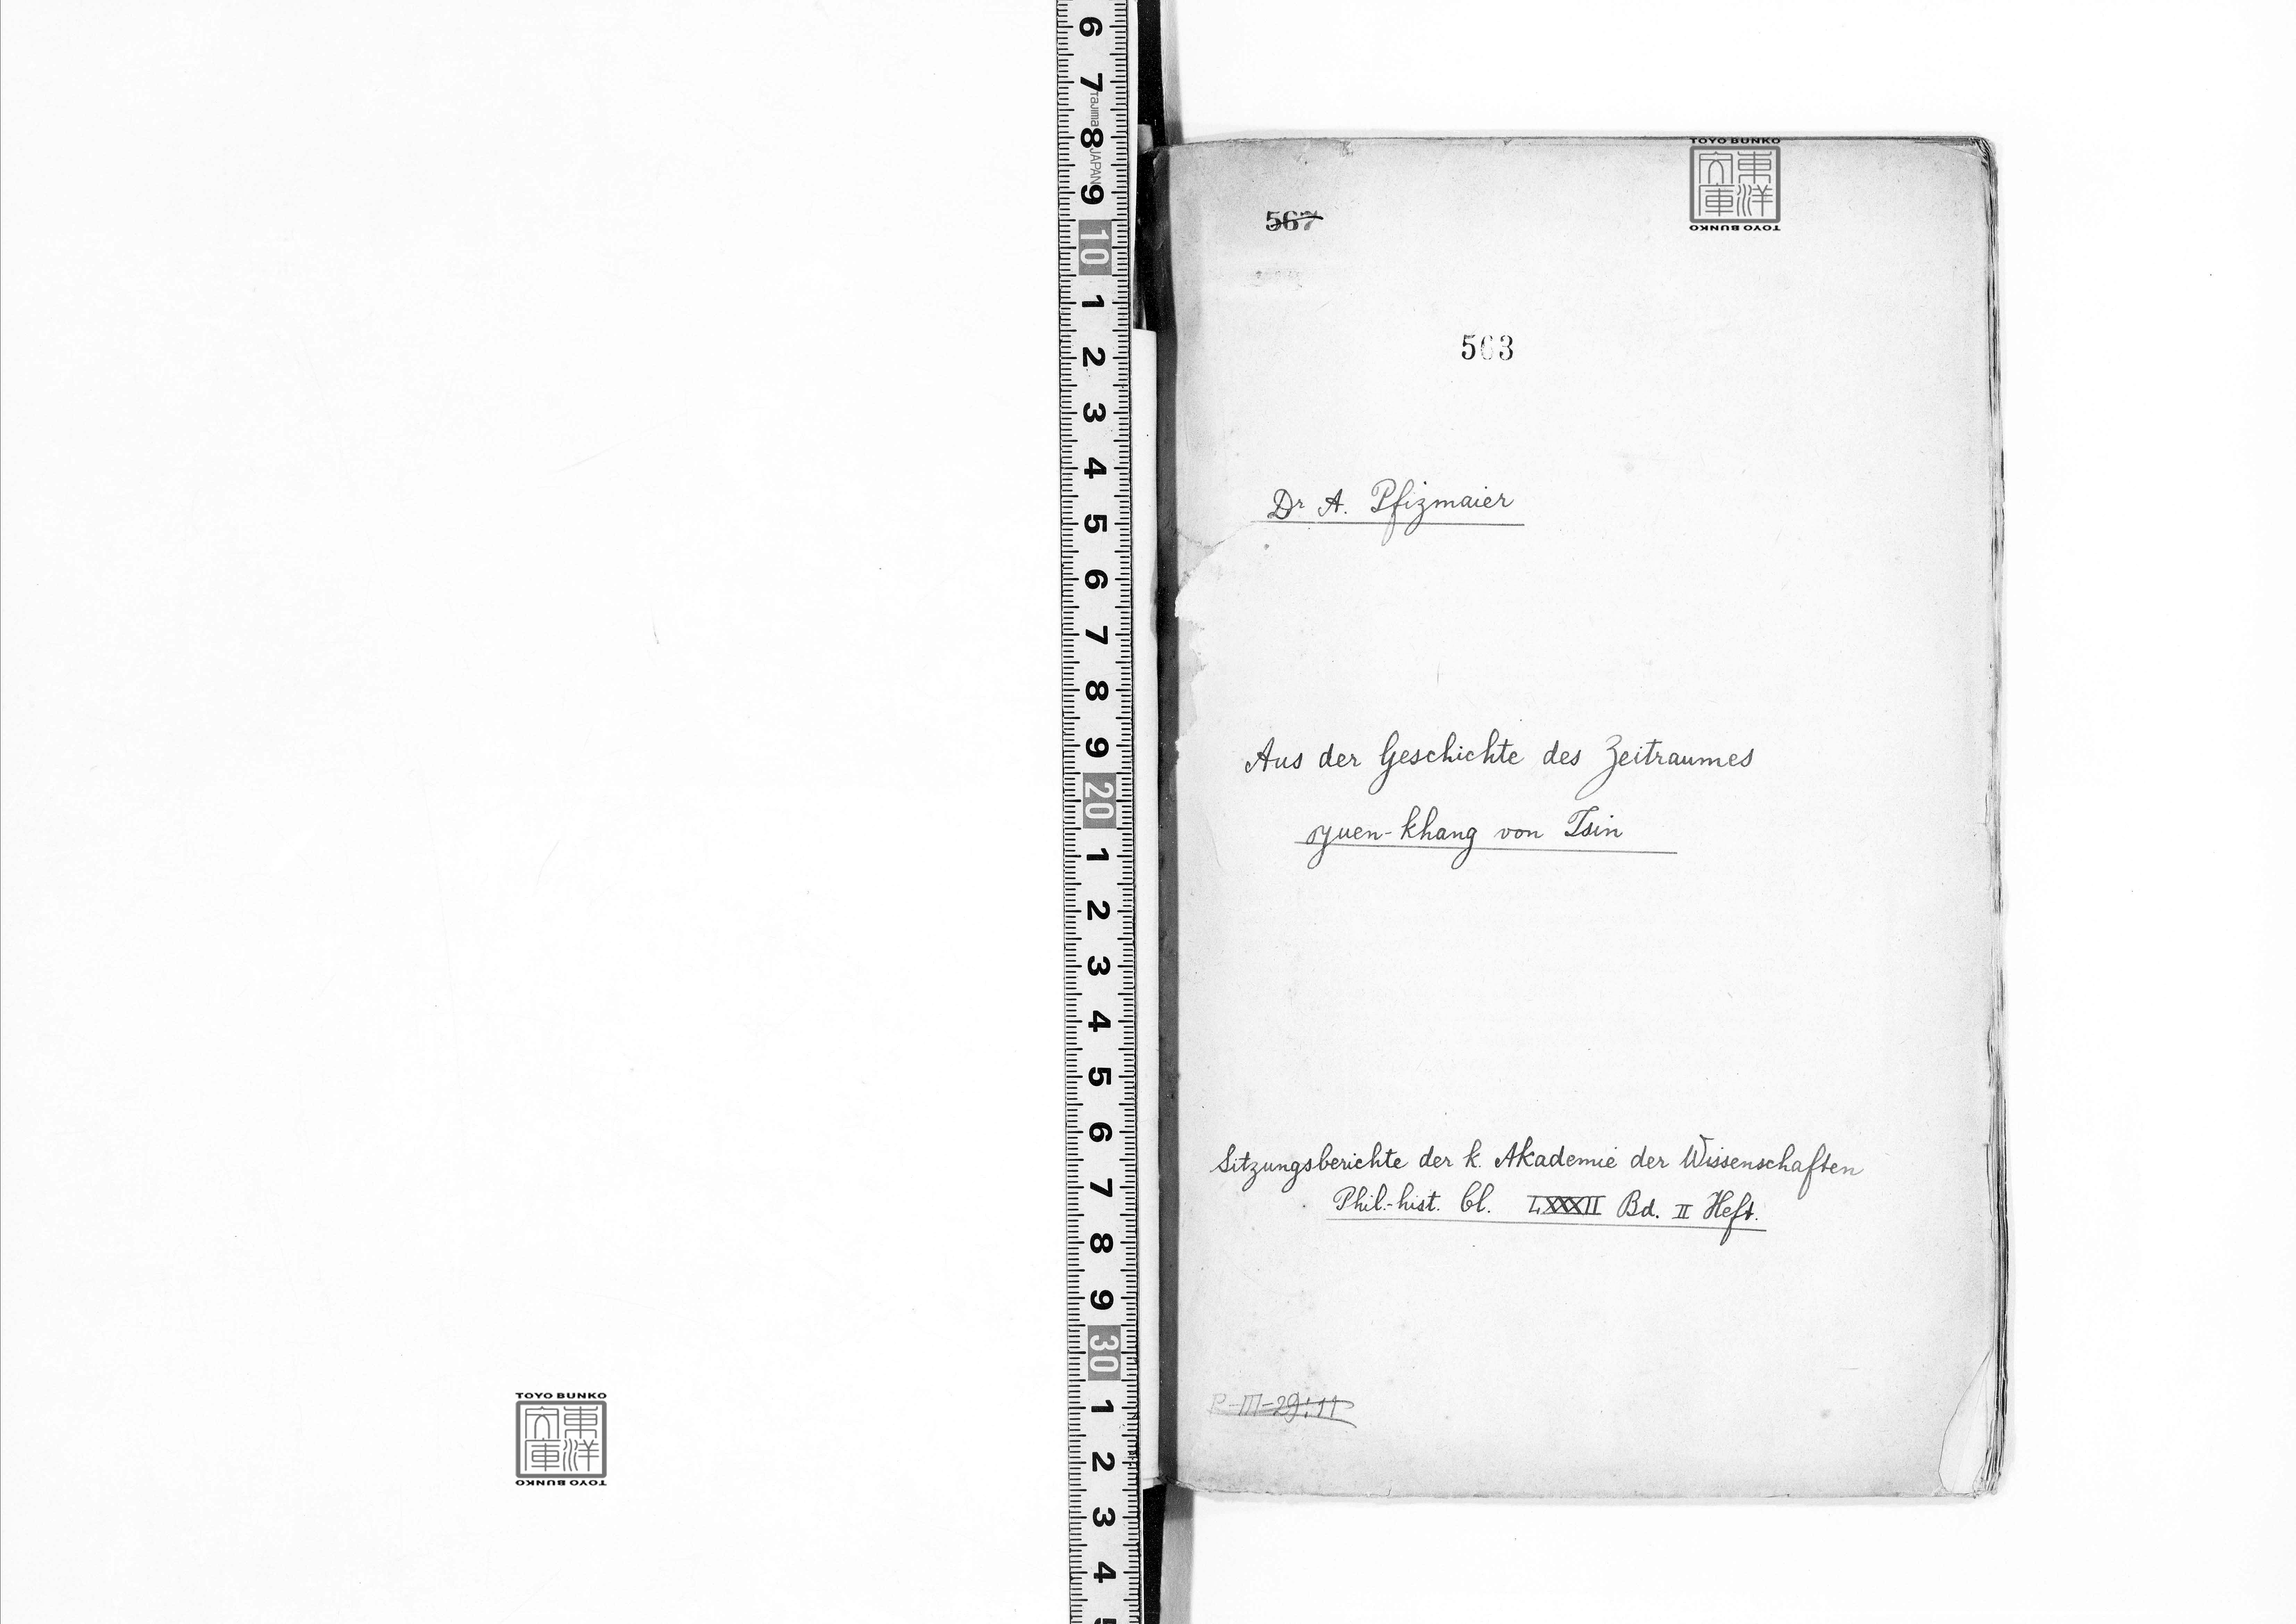 567
563
Dr A. Pfizmaier
Aus der Geschichte des Zeitraumes
Yuen-khang von Tsin
Sitzungsberichte der k. Akademie der Wissenschaften
Phil.-hist. Cl. LXXXII Bd. II Heft.
P-III-29:11
TOYO BUNKO
東洋文庫
TOYO BUNKO
TOYO BUNKO
東洋文庫
TOYO BUNKO
6 7 8 9 10 1 2 3 4 5 6 7 8 9 20 1 2 3 4 5 6 7 8 9 30 1 2 3 4
Tajima JAPAN